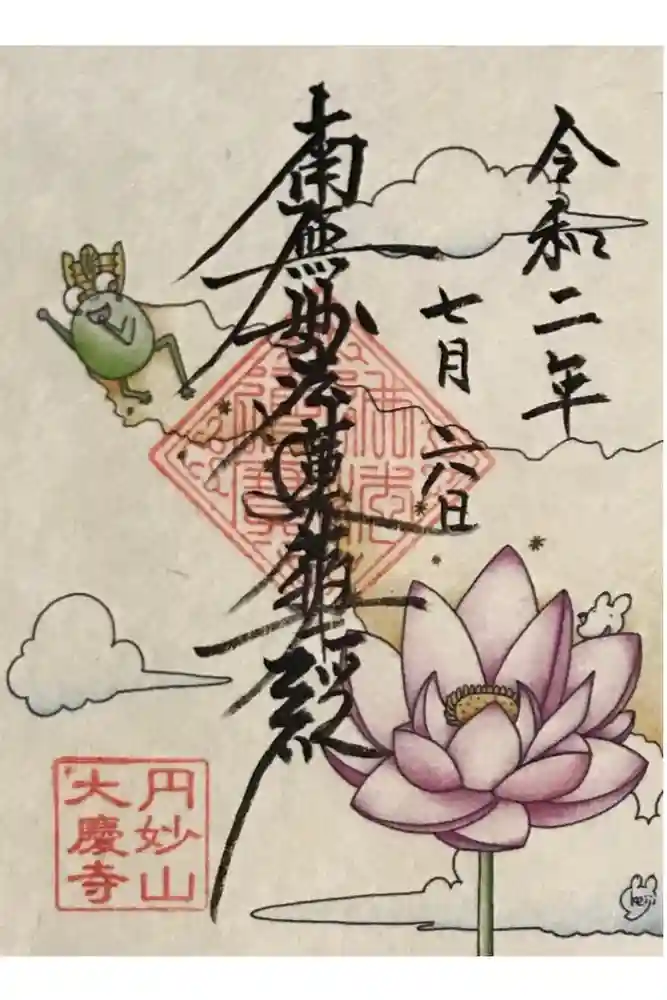 令和二年
七月六日
南無妙法蓮華経
佛法
僧寳
円妙山
大慶寺
keiji